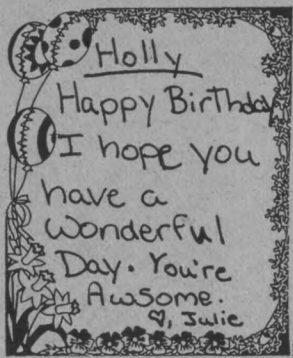 Holly
Happy Birthday
I hope you
have a
wonderful
Day. You're
Awsome.
♡, Julie